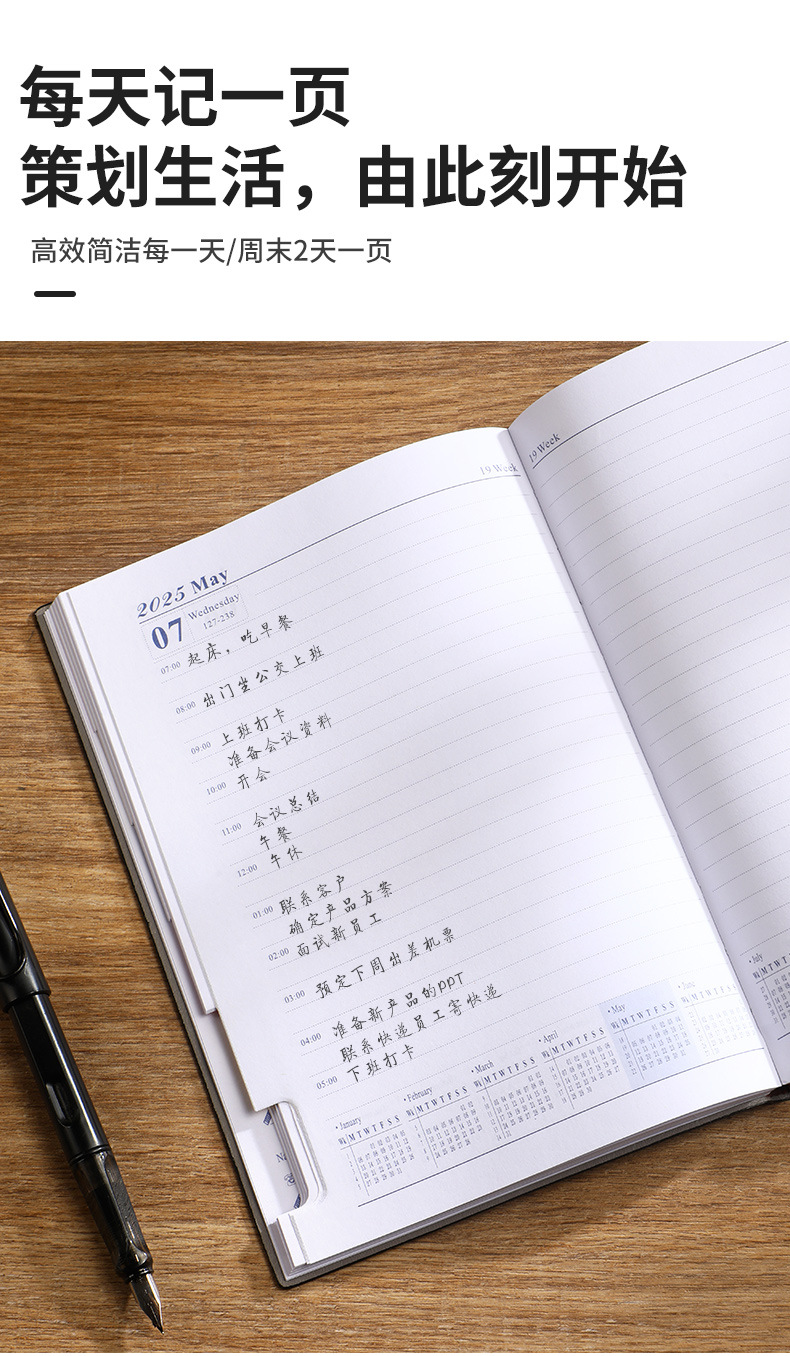 每天记一页
策划生活，由此刻开始
高效简洁每一天/周末2天一页
19 Week
19 Week
2025 May
07 Wednesday
127-238
07:00 起床，吃早餐
08:00 出门坐公交上班
09:00 上班打卡
准备会议资料
10:00 开会
11:00 会议总结
午餐
12:00 午休
01:00 联系客户
确定产品方案
02:00 面试新员工
03:00 预定下周出差机票
04:00 准备新产品的PPT
联系快递员工寄快递
05:00 下班打卡
January
Wk M T W T F S S
February
Wk M T W T F S S
March
Wk M T W T F S S
April
Wk M T W T F S S
May
Wk M T W T F S S
June
July